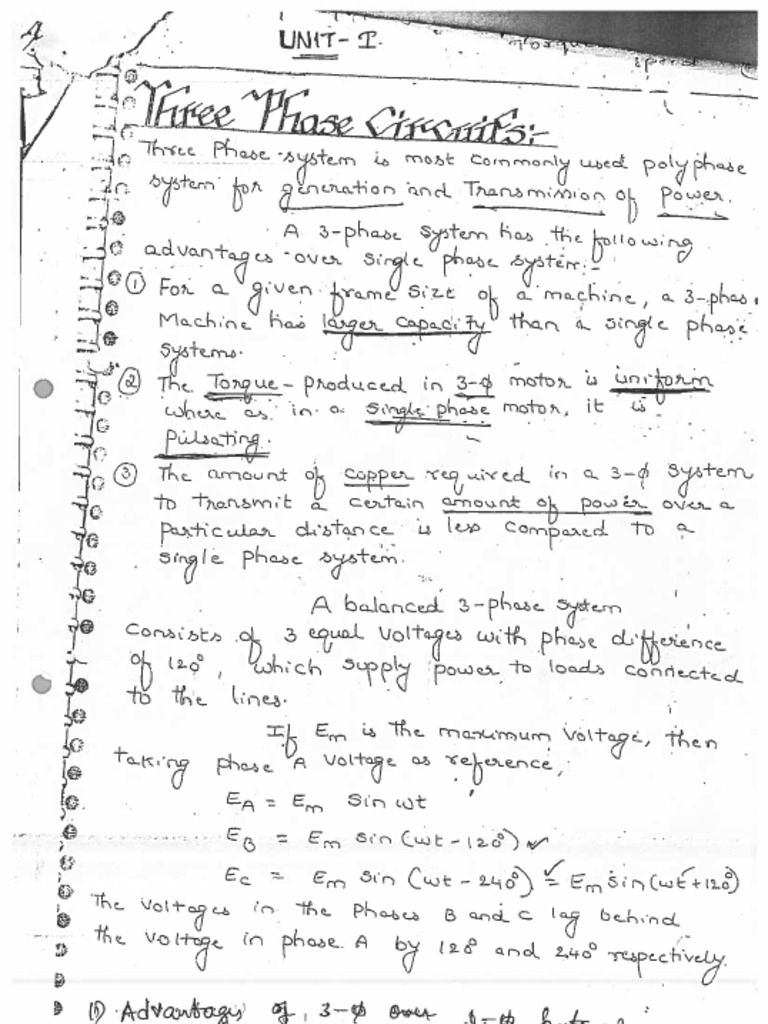 UNIT - I.
Torque
speed
Three Phase Circuits:-
Three Phase system is most commonly used polyphase
system for generation and Transmission of Power.
A 3-phase system has the following
advantages over single phase system:-
① For a given frame size of a machine, a 3-phas
Machine has larger capacity than a single phase
systems.
② The Torque - produced in 3-ɸ motor is uniform
where as in a single phase motor, it is
pulsating.
③ The amount of copper required in a 3-ɸ system
to transmit a certain amount of power over a
particular distance is less compared to a
single phase system.
A balanced 3-phase system
consists of 3 equal voltages with phase difference
of 120°, which supply power to loads connected
to the lines.
If Em is the maximum voltage, then
taking phase A voltage as reference,
EA = Em Sin wt
EB = Em sin (wt - 120°) ✓
Ec = Em sin (wt - 240°) ✓ = Em sin (wt + 120°)
The voltages in the Phases B and C lag behind
the voltage in phase A by 120° and 240° respectively.
(1) Advantages of 3-ɸ over 1-ɸ